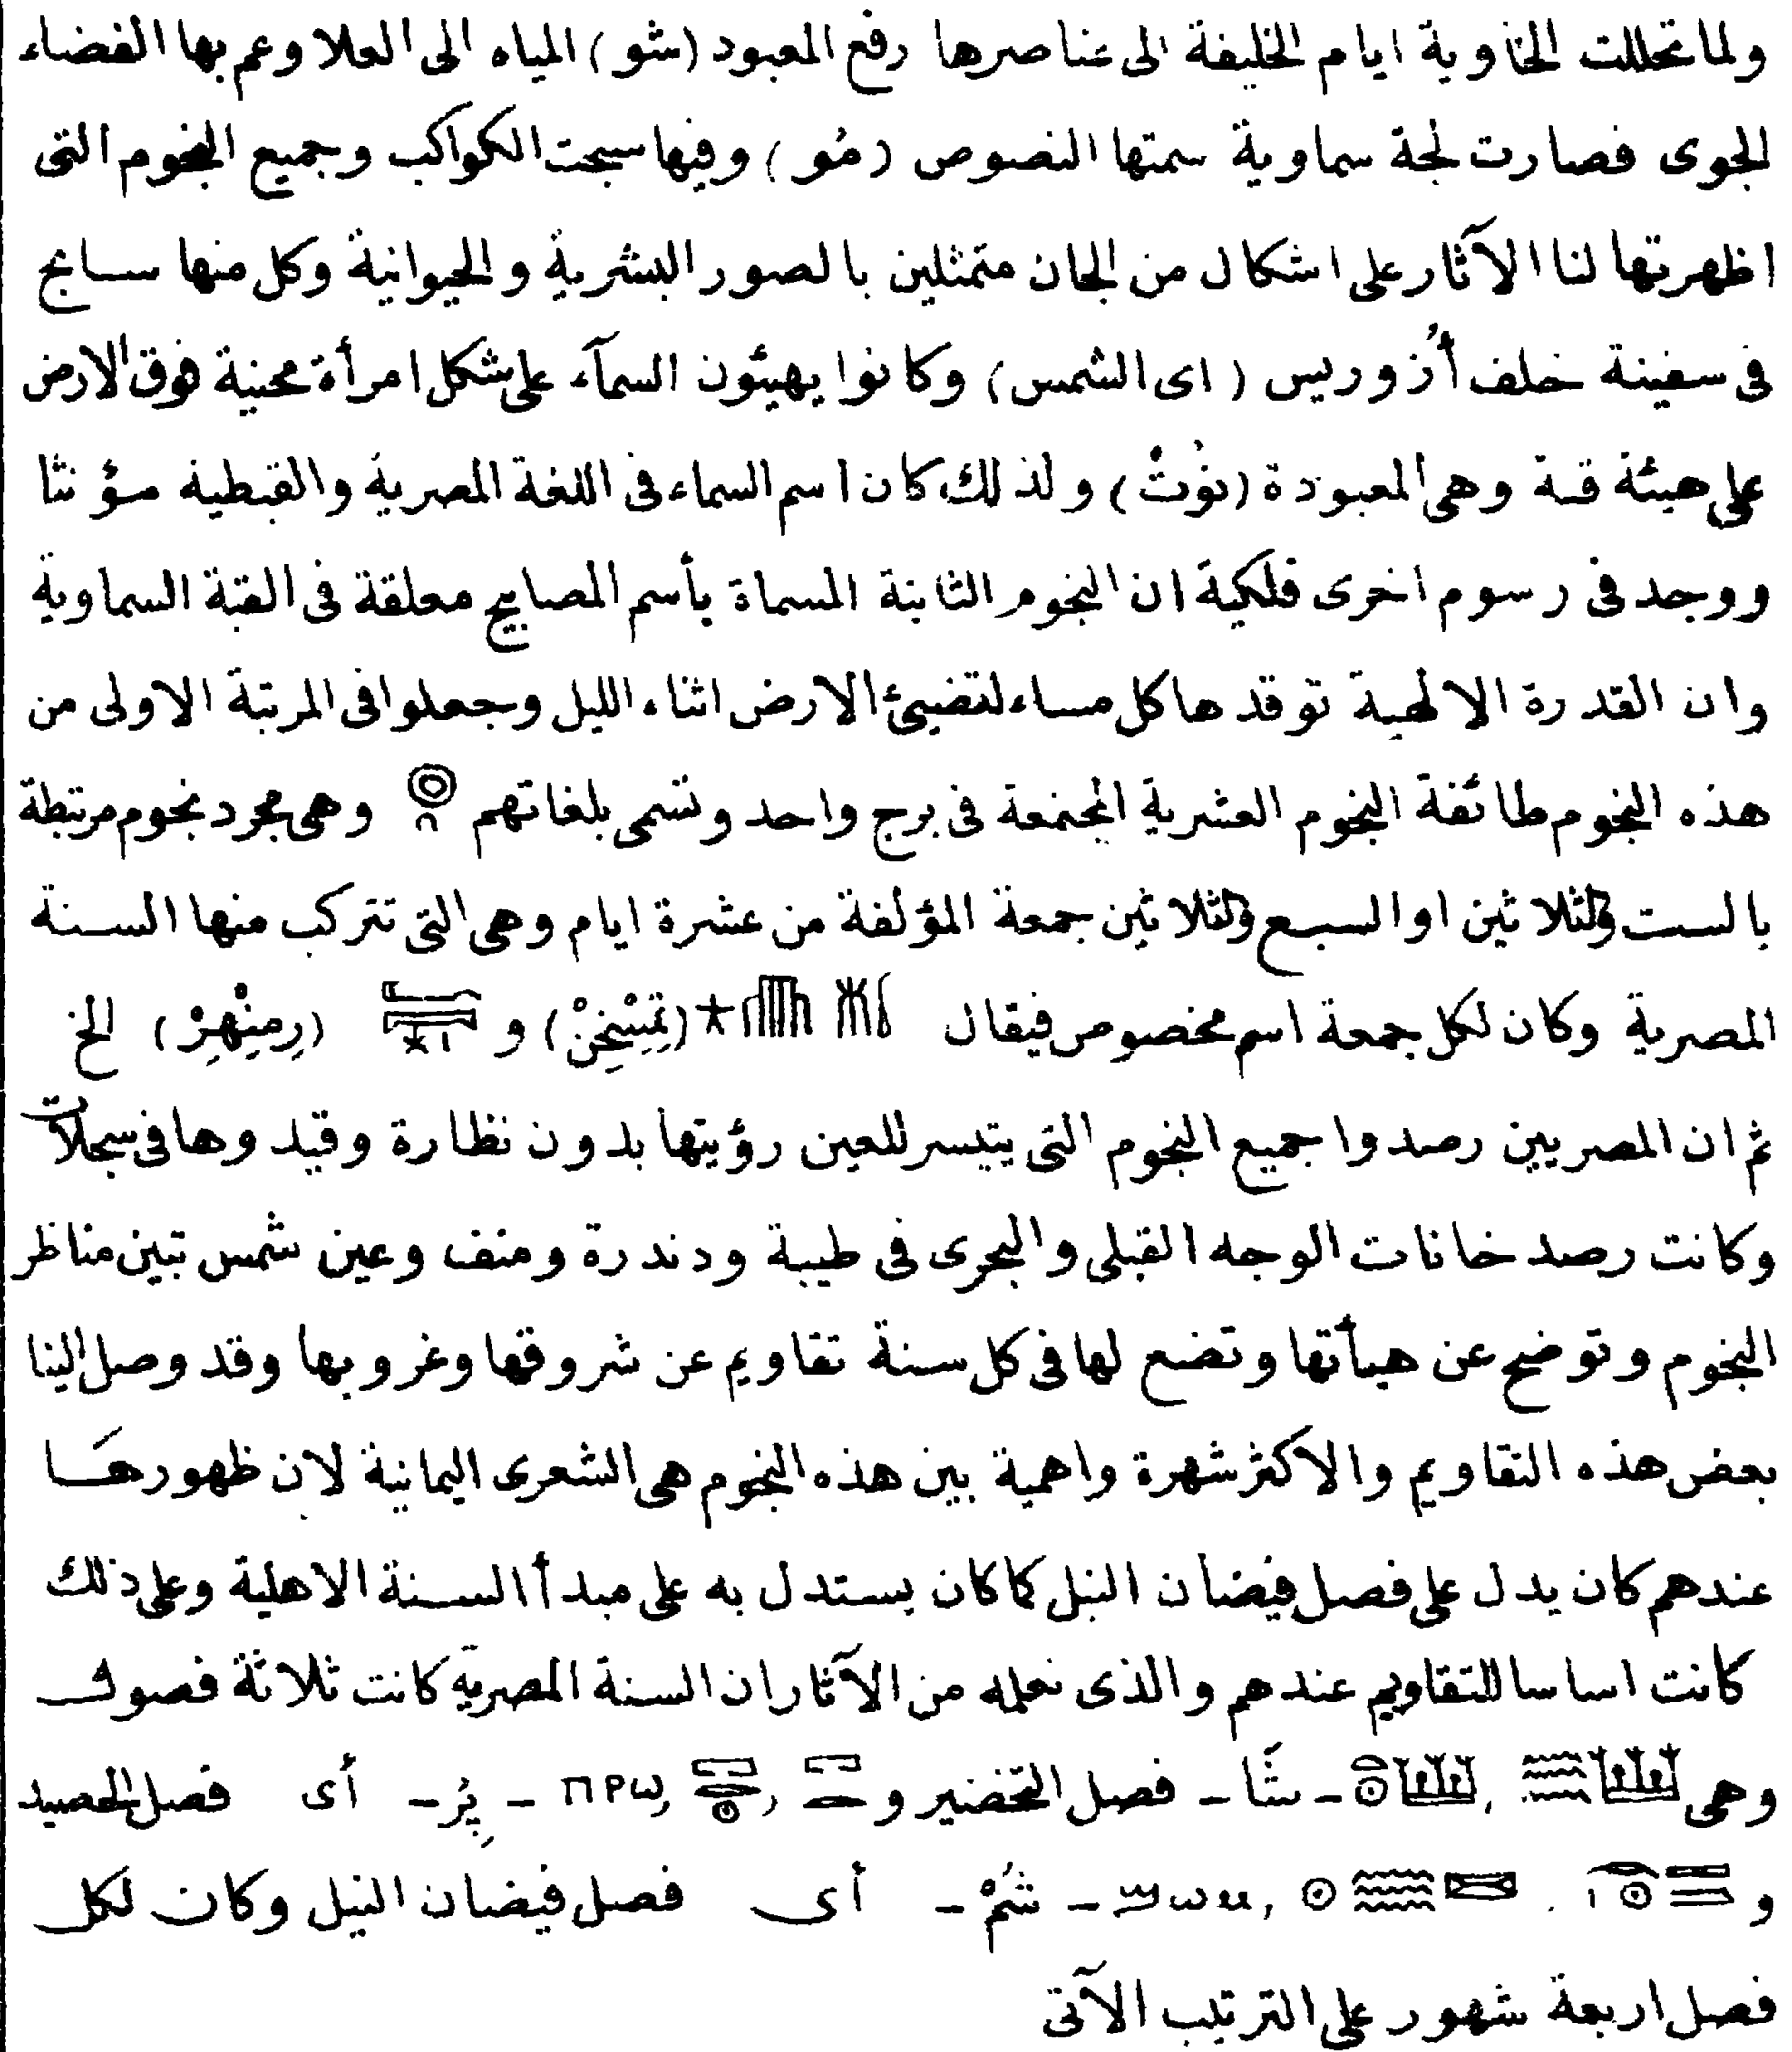 ولما تحللت الخاوية ايام الخليفة الى عناصرها رفع المعبود (شو) المياه الى العلا وعم بها الفضاء
الجوى فصارت لجة سماوية سمتها النصوص (مُو) وفيها سبحت الكواكب وجميع النجوم التى
اظهرتها لنا الآثار على اشكال من الجان متمثلين بالصور البشرية والحيوانية وكل منها سابح
فى سفينة خلف أُزوريس (اى الشمس) وكانوا يهيئون السمآء على شكل امرأة محنية فوق الارض
على هيئة قبة وهى المعبودة (نوُتْ) ولذلك كان اسم السماء فى اللغة المصرية والقبطية مؤنثا
ووجد فى رسوم اخرى فلكية ان النجوم الثابتة المسماة بأسم المصابيح معلقة فى القبة السماوية
وان القدرة الالهية توقدها كل مساء لتضيئ الارض اثناء الليل وجعلوا فى المرتبة الاولى من
هذه النجوم طائفة النجوم العشرية المجتمعة فى برج واحد وتسمى بلغاتهم وهى مجرد نجوم مرتبطة
بالست والثلاثين او السبع والثلاثين جمعة المؤلفة من عشرة ايام وهى التى تتركب منها السنة
المصرية وكان لكل جمعة اسم مخصوص فيقال (تِمِسْخِنْ) و (رِمِنْهِرْ) الخ
ثم ان المصريين رصدوا جميع النجوم التى يتيسر للعين رؤيتها بدون نظارة وقيدوها فى سجلات
وكانت رصد خانات الوجه القبلى والبحرى فى طيبة ودندرة ومنف وعين شمس تبين مناظر
النجوم وتوضح عن هيأتها وتضع لها فى كل سنة تقاويم عن شروقها وغروبها وقد وصل الينا
بعض هذه التقاويم والاكثر شهرة واهمية بين هذه النجوم هى الشعرى اليمانية لان ظهورها
عندهم كان يدل على فصل فيضان النيل كما كان يستدل به على مبدأ السنة الاهلية وعلى ذلك
كانت اساسا للتقاويم عندهم والذى نعلمه من الآثار ان السنة المصرية كانت ثلاثة فصول
وهى - شَا - فصل التخضير و ⲡⲣⲱ - پِرُ - أى فصل الحصيد
و ϣⲱⲙ - شُمْ - أى فصل فيضان النيل وكان لكل
فصل اربعة شهور على الترتيب الآتى